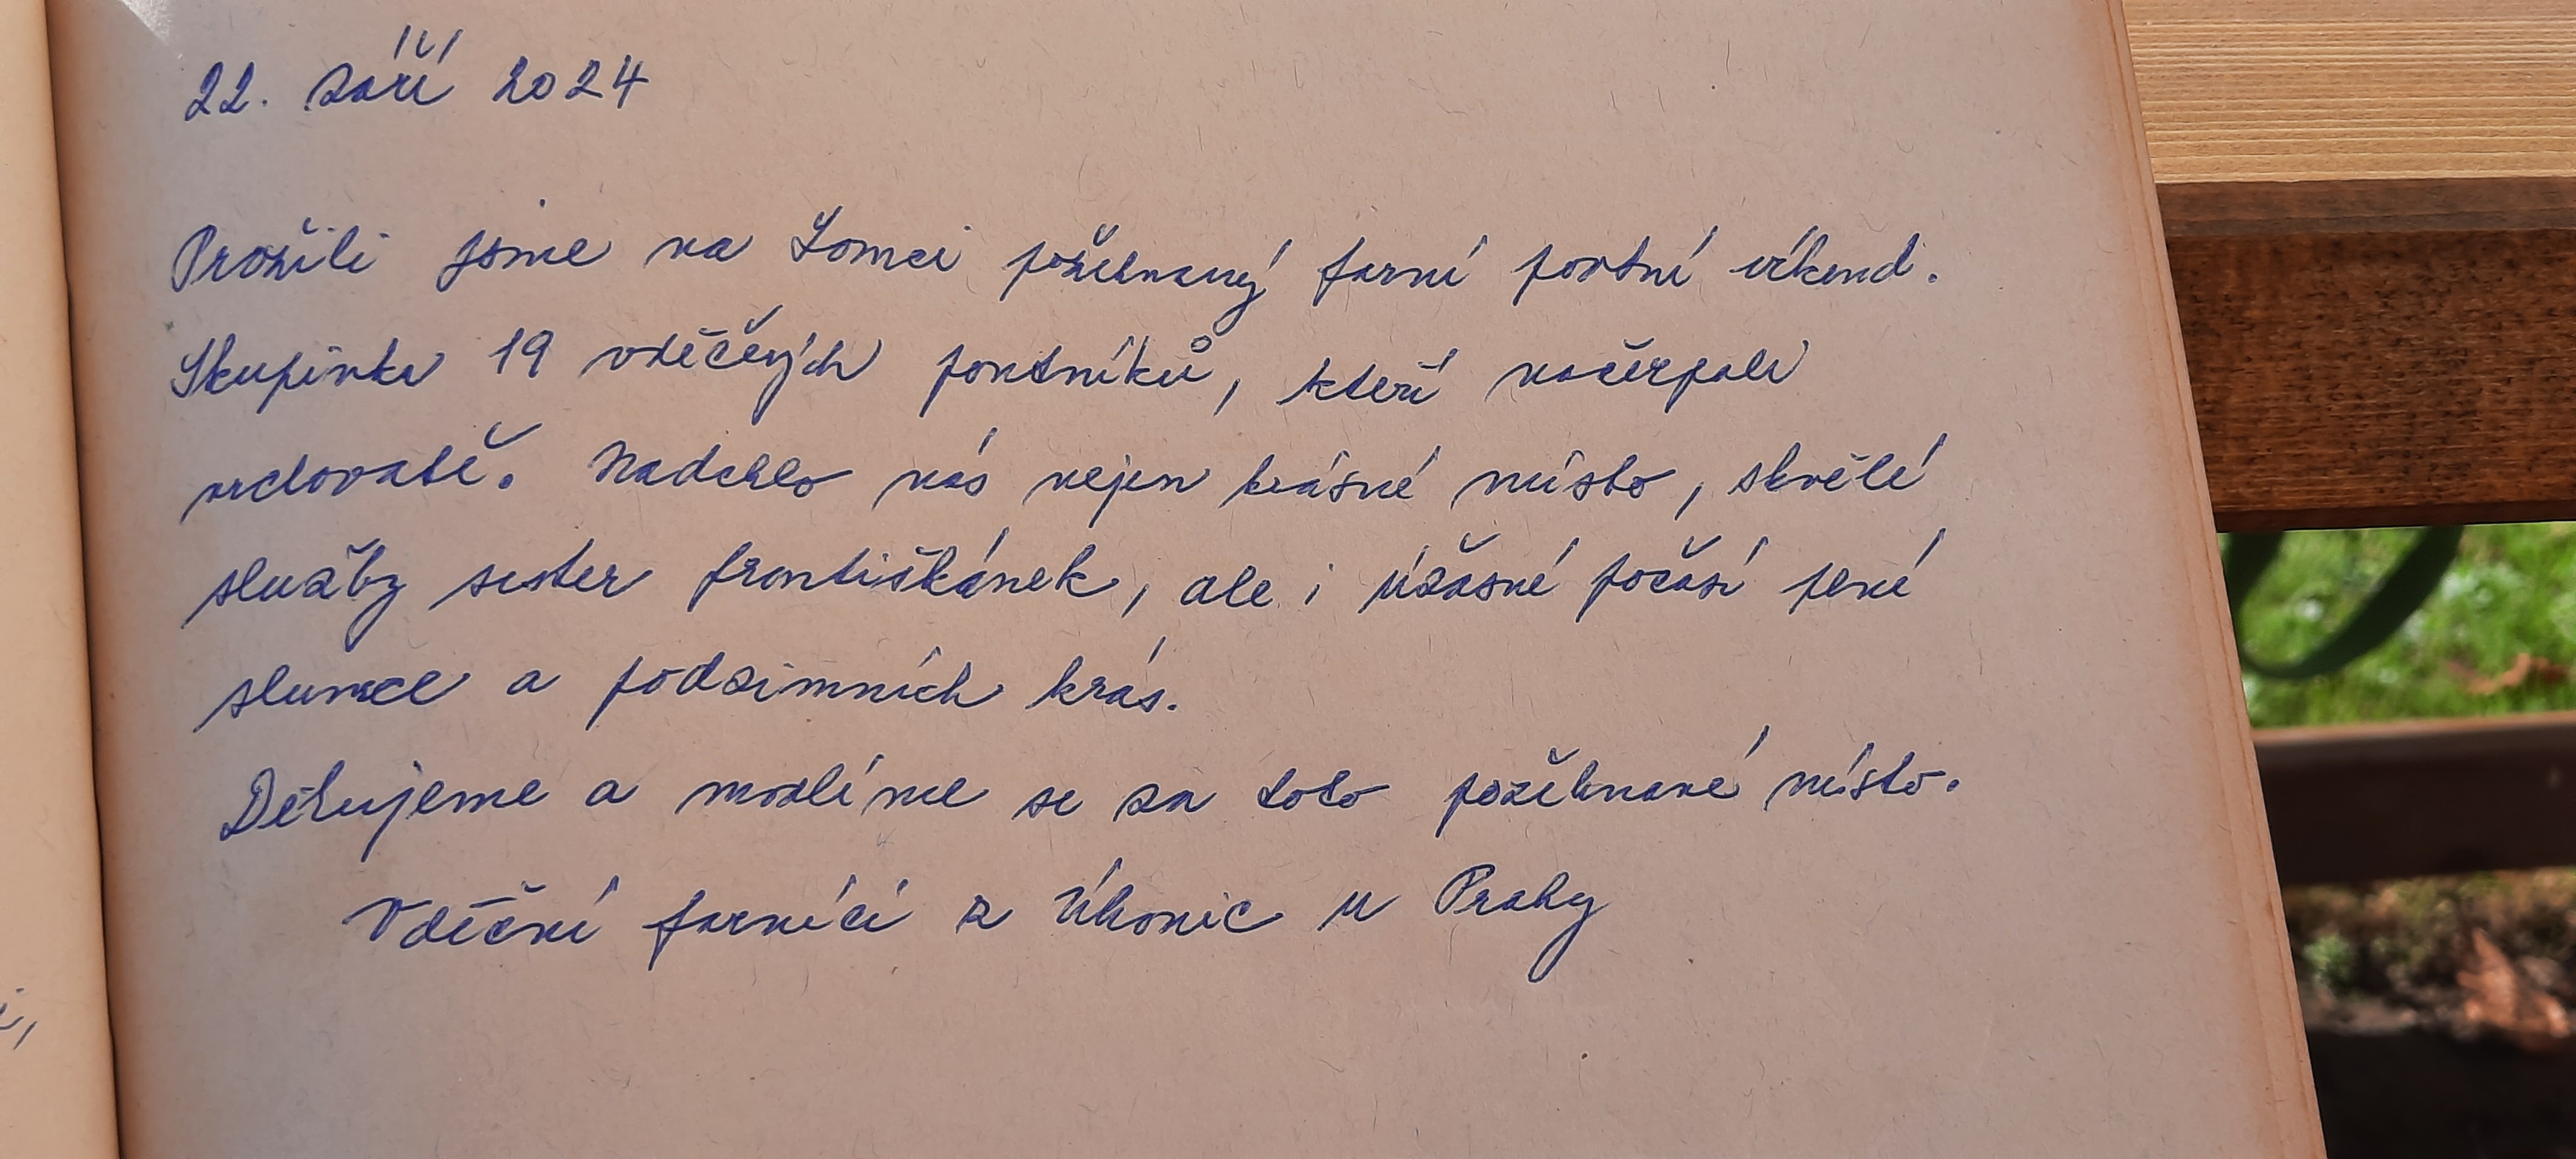 22. září 2024
Prožili jsme na Lomci požehnaný farní postní víkend.
Skupinka 19 vděčných poutníků, kteří načerpali
vrchovatě. Nadchlo nás nejen krásné místo, skvělé
služby sester františkánek, ale i úžasné počasí plné
slunce a podzimních krás.
Děkujeme a modlíme se za toto požehnané místo.
Vděční farníci z Úhonic u Prahy